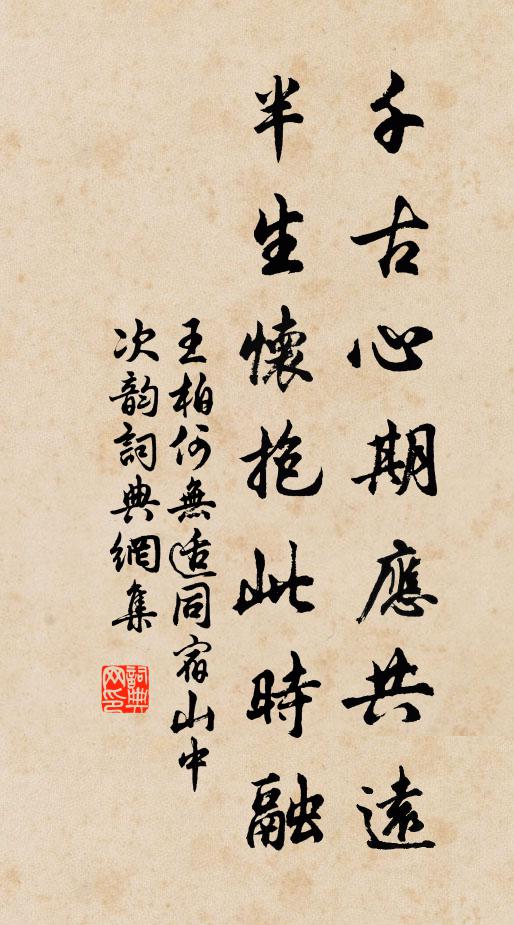 千古心期應共遠
半生懷抱此時融
王柏何無适同宿山中
次韵詞典網集
詞典
网印